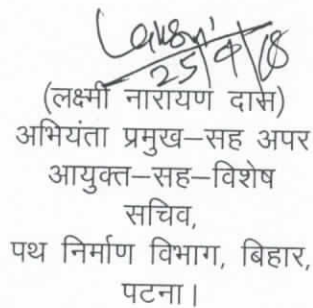 25/9/18
(लक्ष्मी नारायण दास)
अभियंता प्रमुख–सह अपर
आयुक्त–सह–विशेष
सचिव,
पथ निर्माण विभाग, बिहार,
पटना।